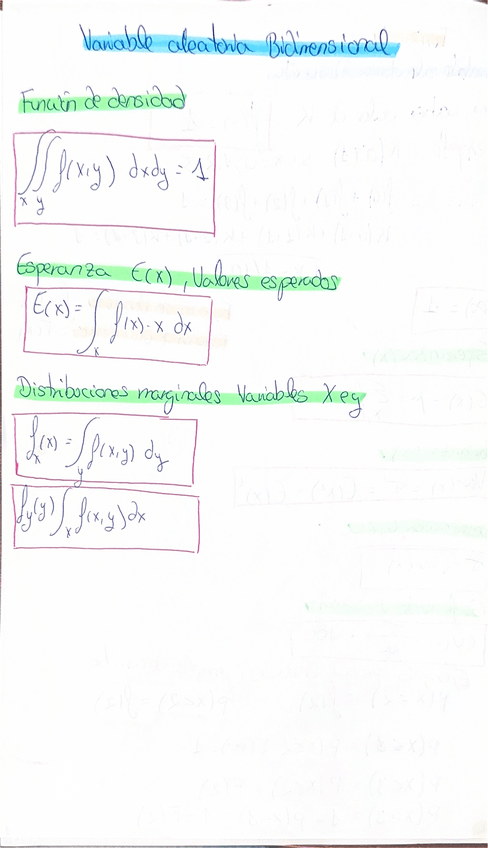 Variable aleatoria Bidimensional
Función de densidad
∬ f(x,y) dxdy = 1
x y
Esperanza E(x), Valores esperados
E(x) = ∫ f(x)·x dx
x
Distribuciones marginales Variables X e y
fx(x) = ∫y f(x,y) dy
fy(y) ∫x f(x,y) dx